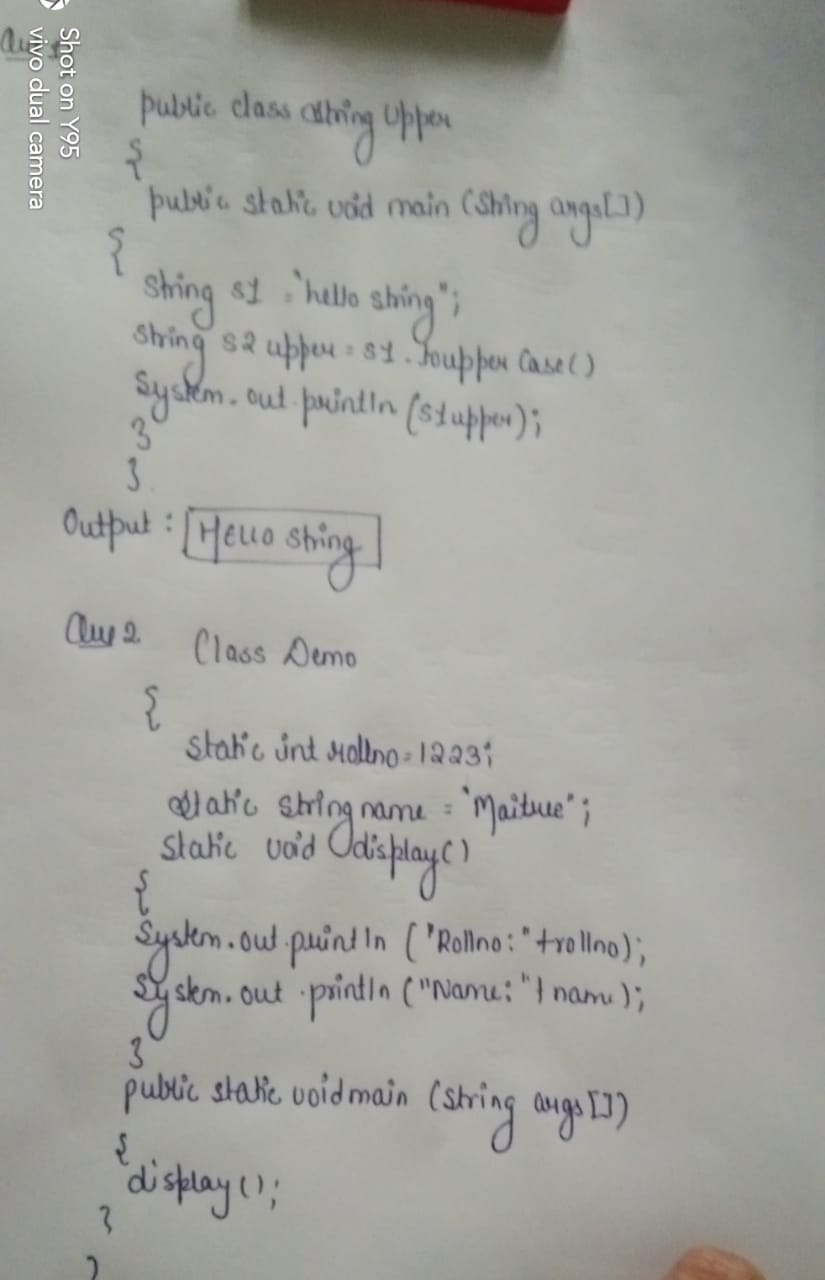 Shot on Y95
vivo dual camera
public class String Upper
{
public static void main (String args[])
{
String s1 = "hello string";
String s2 upper = s1. toupper Case()
System. out. println (s1upper);
}
}
Output : Hello string
Ans 2 Class Demo
{
static int rollno = 1223;
static string name = "Maitree";
static void display()
{
System. out. println ("Rollno:" +rollno);
System. out. println ("Name:" + name);
}
public static void main (string args [])
{
display();
}
}